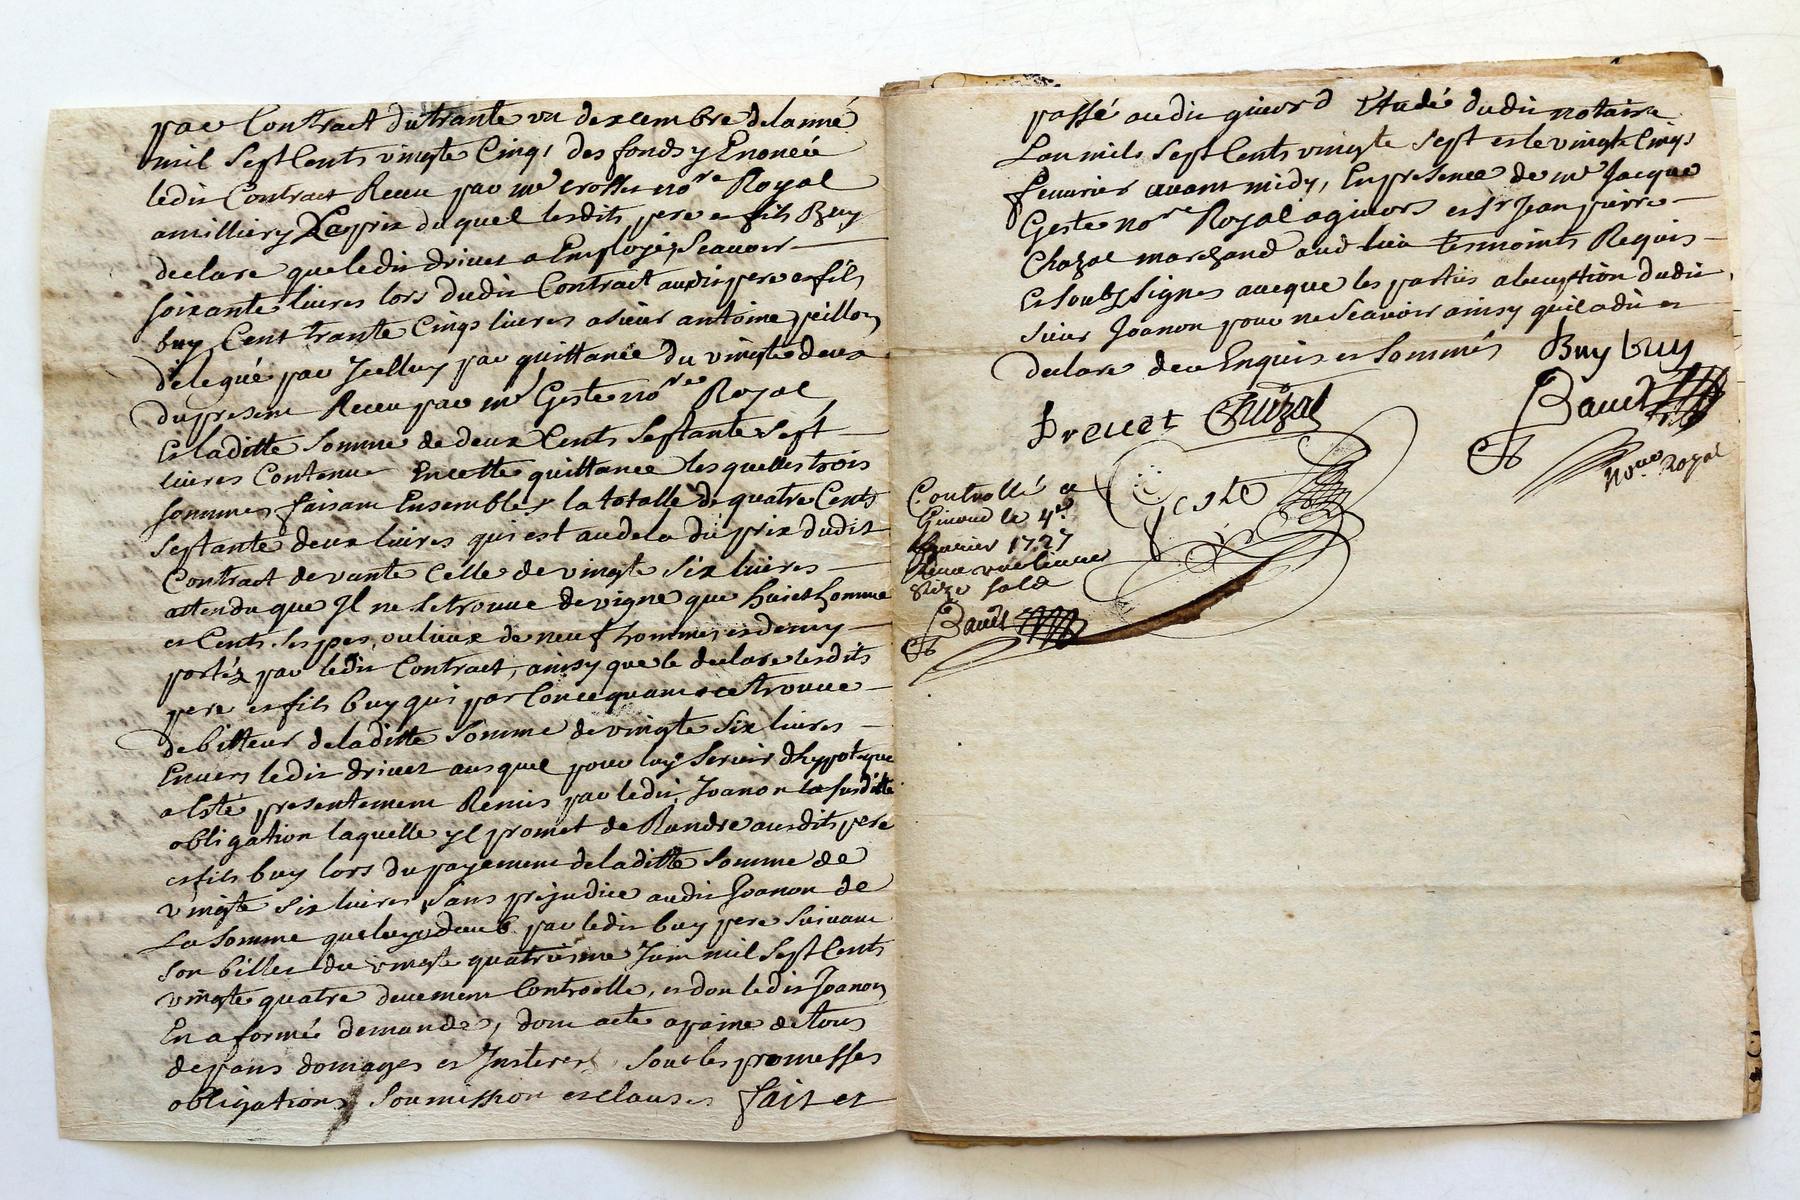 par Contract du trante un dexcembre delanné
mil Sept Cents vingte Cinq, des fonds y Enoncée
ledit Contract Receu par me no.re Royal
a milliery Leprix duquel lesdits pere et fils Buy
declare que ledit drivet a Employé, Scauoir
soixante liures lors dudit Contract audit pere et fils
buy Cent trante Cinqs liures a sieur antoine peillon
delegué par Jcelluy par quittance du vingte deux
du present Receu par me Geste no.re Royal
Et laditte Somme de deux Cents Septante Sept
liures Contenue En cette quittance lesquelles trois
Sommes faisant Ensemble la totalle de quatre Cents
Septante deux liures qui est audela du prix dudit
Contract de vante Celle de vingte Six liures
attendu que Jl ne Se trouue de vigne que huict homme
et Cents Seppes, ou lieux de neuf hommes et demy
portéz par ledit Contract, ainsy que le declare lesdits
pere et fils buy qui par Concequant ce trouue
debitteur de laditte Somme de vingte Six liures
Enuers ledit drivet auquel pour luy Seruir dhypoteque
a Esté presentement Remis par ledit Joanon la susditte
obligation laquelle yl promet de Randre ausdits pere
et fils buy lors du payement de laditte Somme de
vingte Six liures, Sans préjudice audit Joanon de
La Somme que luy doub par ledit buy pere Suiuant
Son billet du vingte quatriesme Juin mil Sept Cents
vingte quatre deuement Controolle, et dont ledit Joanon
En a formé demande, dont acte a paine de tous
depans domages et Jnterest Soubs les promesses
obligations Soumission et clauses fait et
passé audit giuord Etude dudit notaire
Lan mil Sept Cents vingte Sept et le vingte Cinqs
feuurier auant midy, En presence de me Jacque
Geste no.re Royal a giuors et Sr Jean pierre
Chazal marchand aud lieu tesmoints Requis
Et Soubz Signes aueque les parties a lexception dudit
sieur Joanon pour ne Scauoir ainsy quil a dit et
declare de ce Enquis et Sommés Buy buy
Dreuet Chazal Bauet
no.re Royal
Controllé a Geste
Giuord le 4e
1727
liures
Seize Sols
Bauet